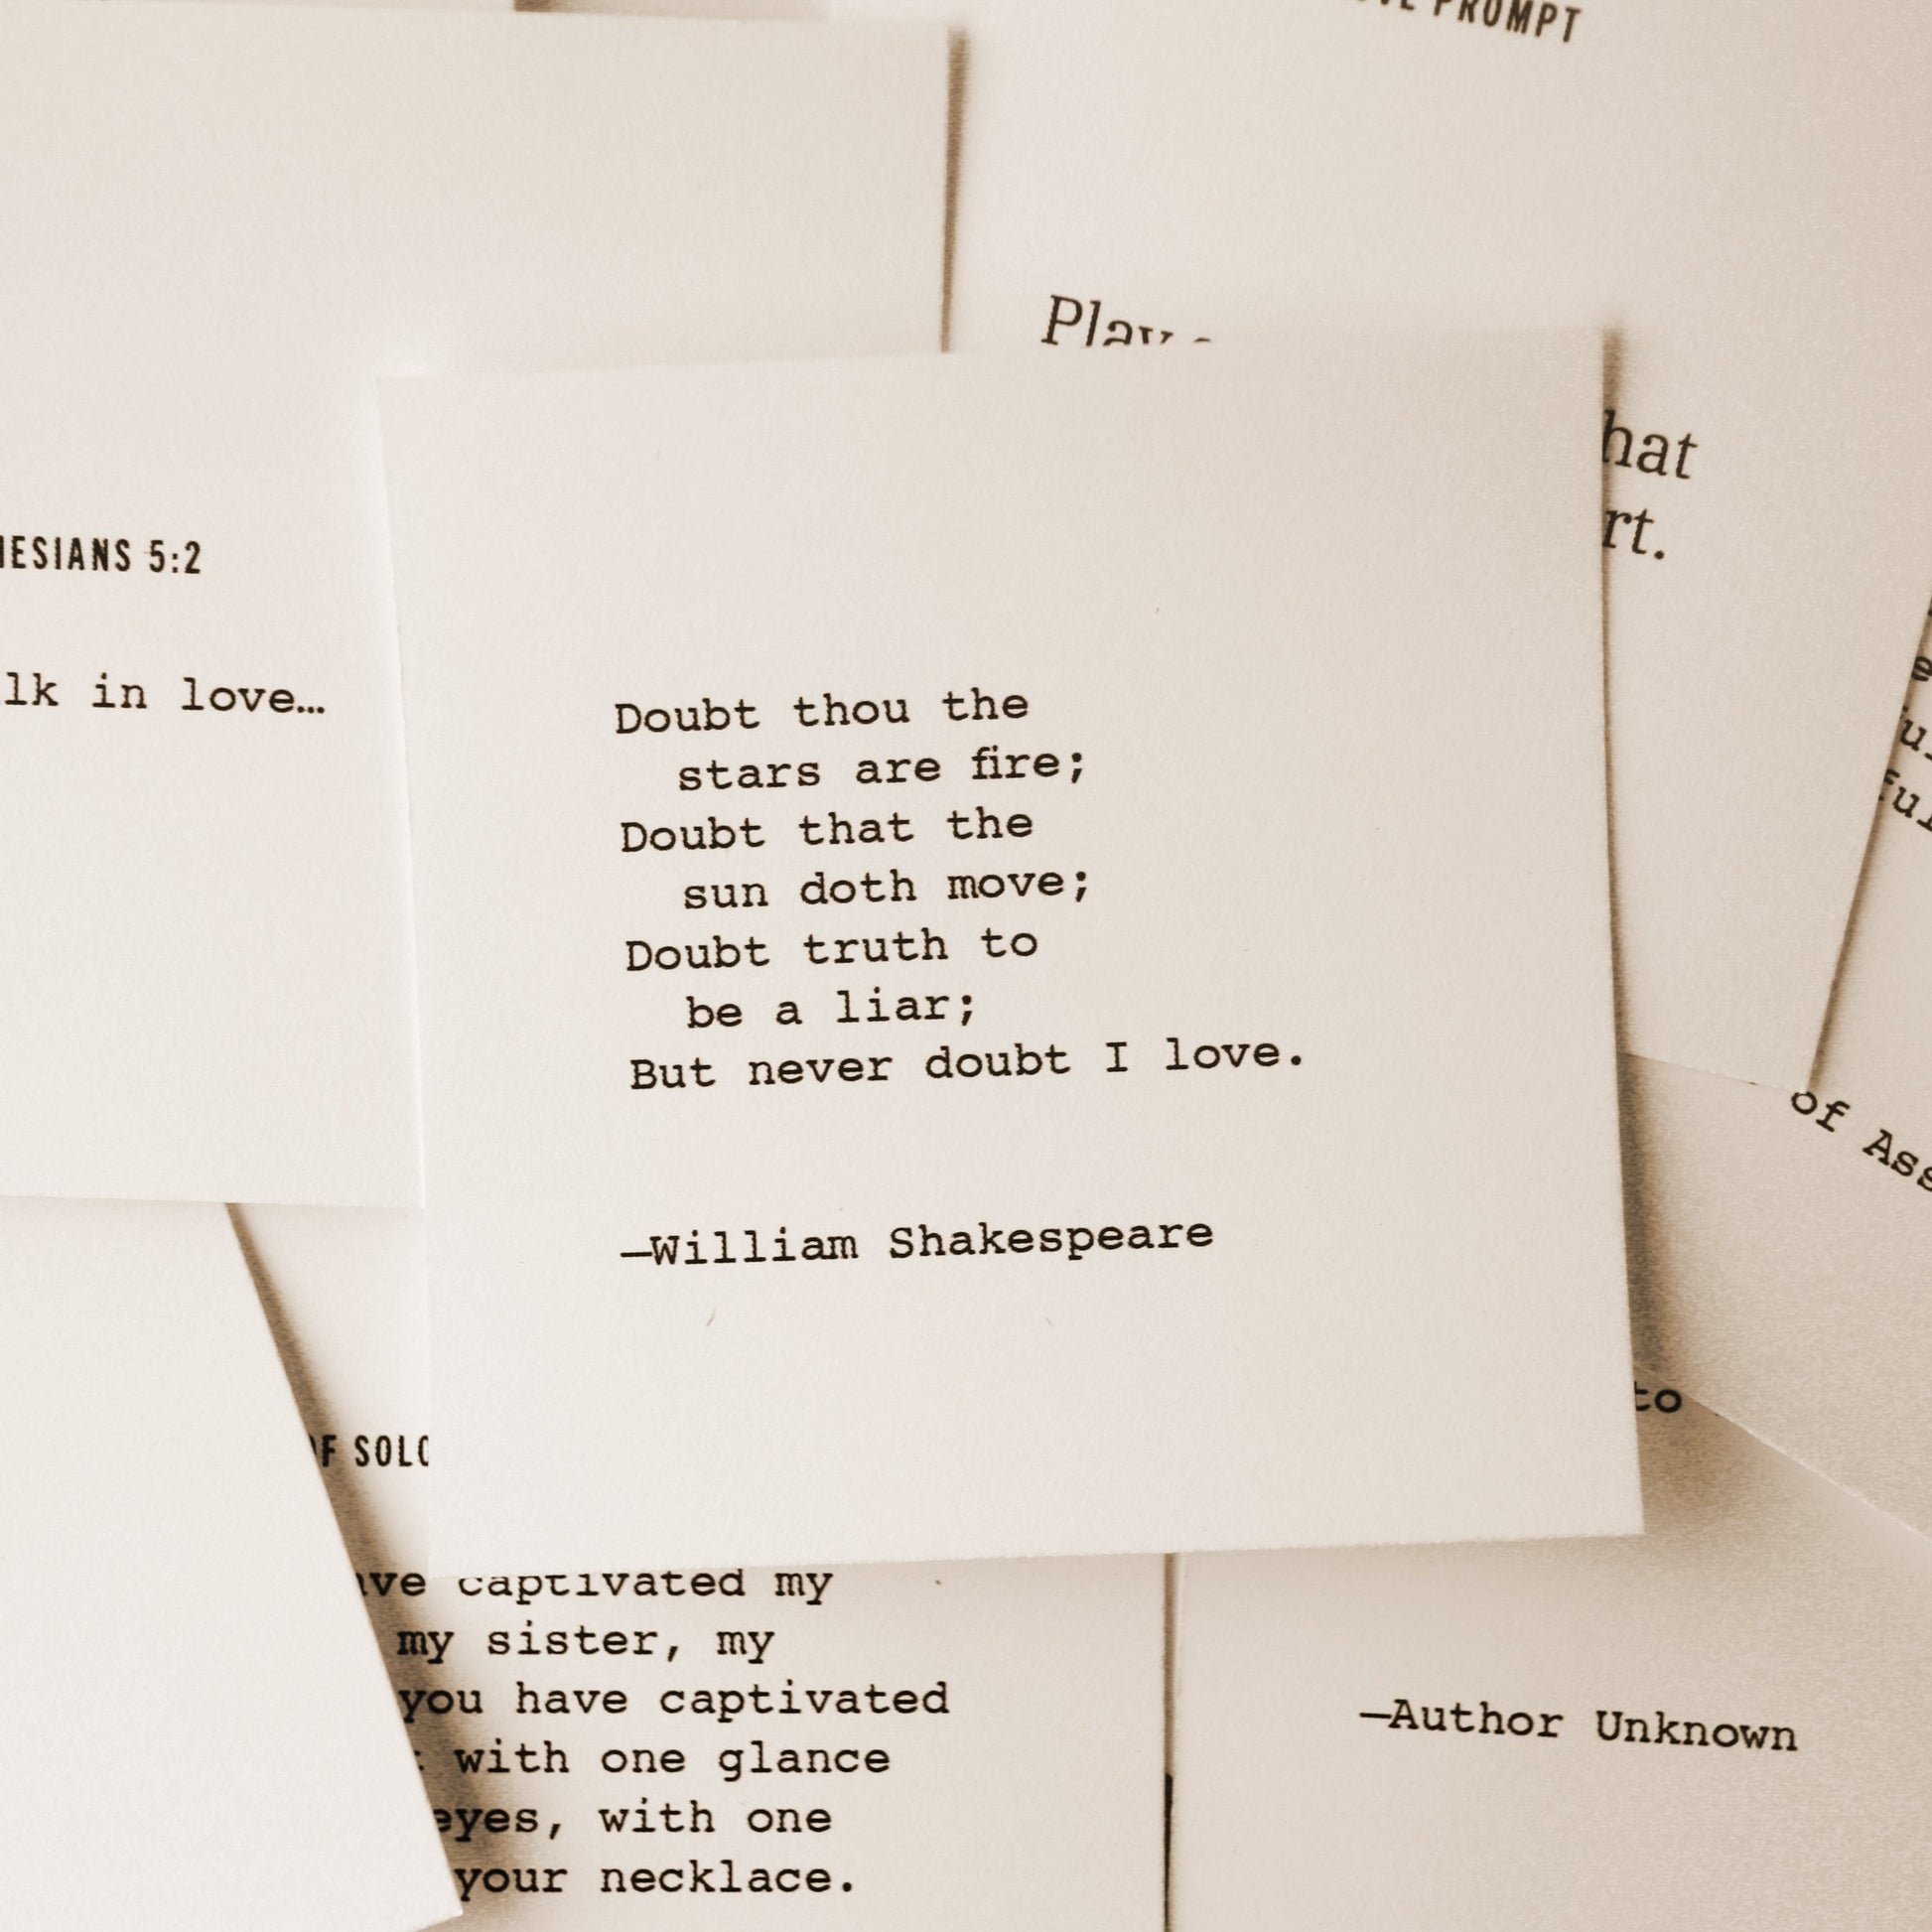 PROMPT
Play
5:2
in love…
Doubt thou the
stars are fire;
Doubt that the
sun doth move;
Doubt truth to
be a liar;
But never doubt I love.
—William Shakespeare
of
to
captivated my
my sister, my
you have captivated
with one glance
eyes, with one
your necklace.
—Author Unknown